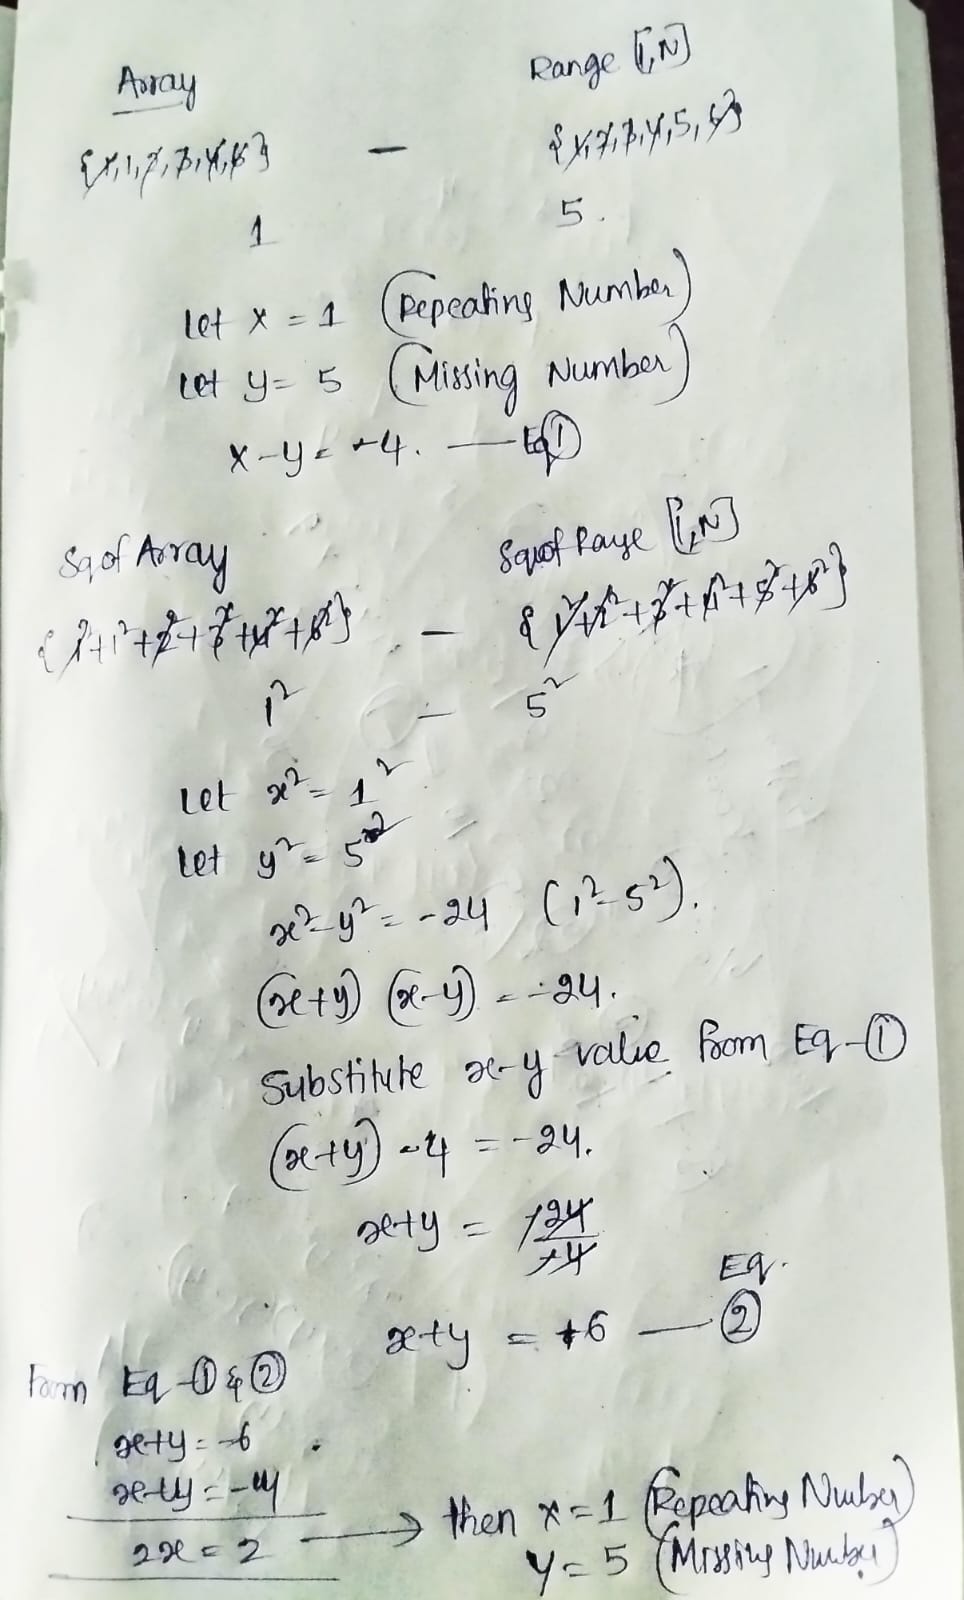 Array Range [1,N]
{1,1,2,3,4,6} - {1,2,3,4,5,6}
1 5.
Let x = 1 (Repeating Number)
Let y = 5 (Missing Number)
x-y = -4. — Eq①
Sq of Array Sq of Range [1,N]
{1²+1²+2²+3²+4²+6²} - {1²+2²+3²+4²+5²+6²}
1² - 5²
Let x² = 1²
Let y² = 5²
x²-y² = -24 (1²-5²).
(x+y) (x-y) = -24.
Substitute x-y value from Eq-①
(x+y) -4 = -24.
x+y = -24/-4
x+y = +6 — Eq. ②
From Eq-① & ②
x+y = 6
x-y = -4
2x = 2 → then x = 1 (Repeating Number)
y = 5 (Missing Number)